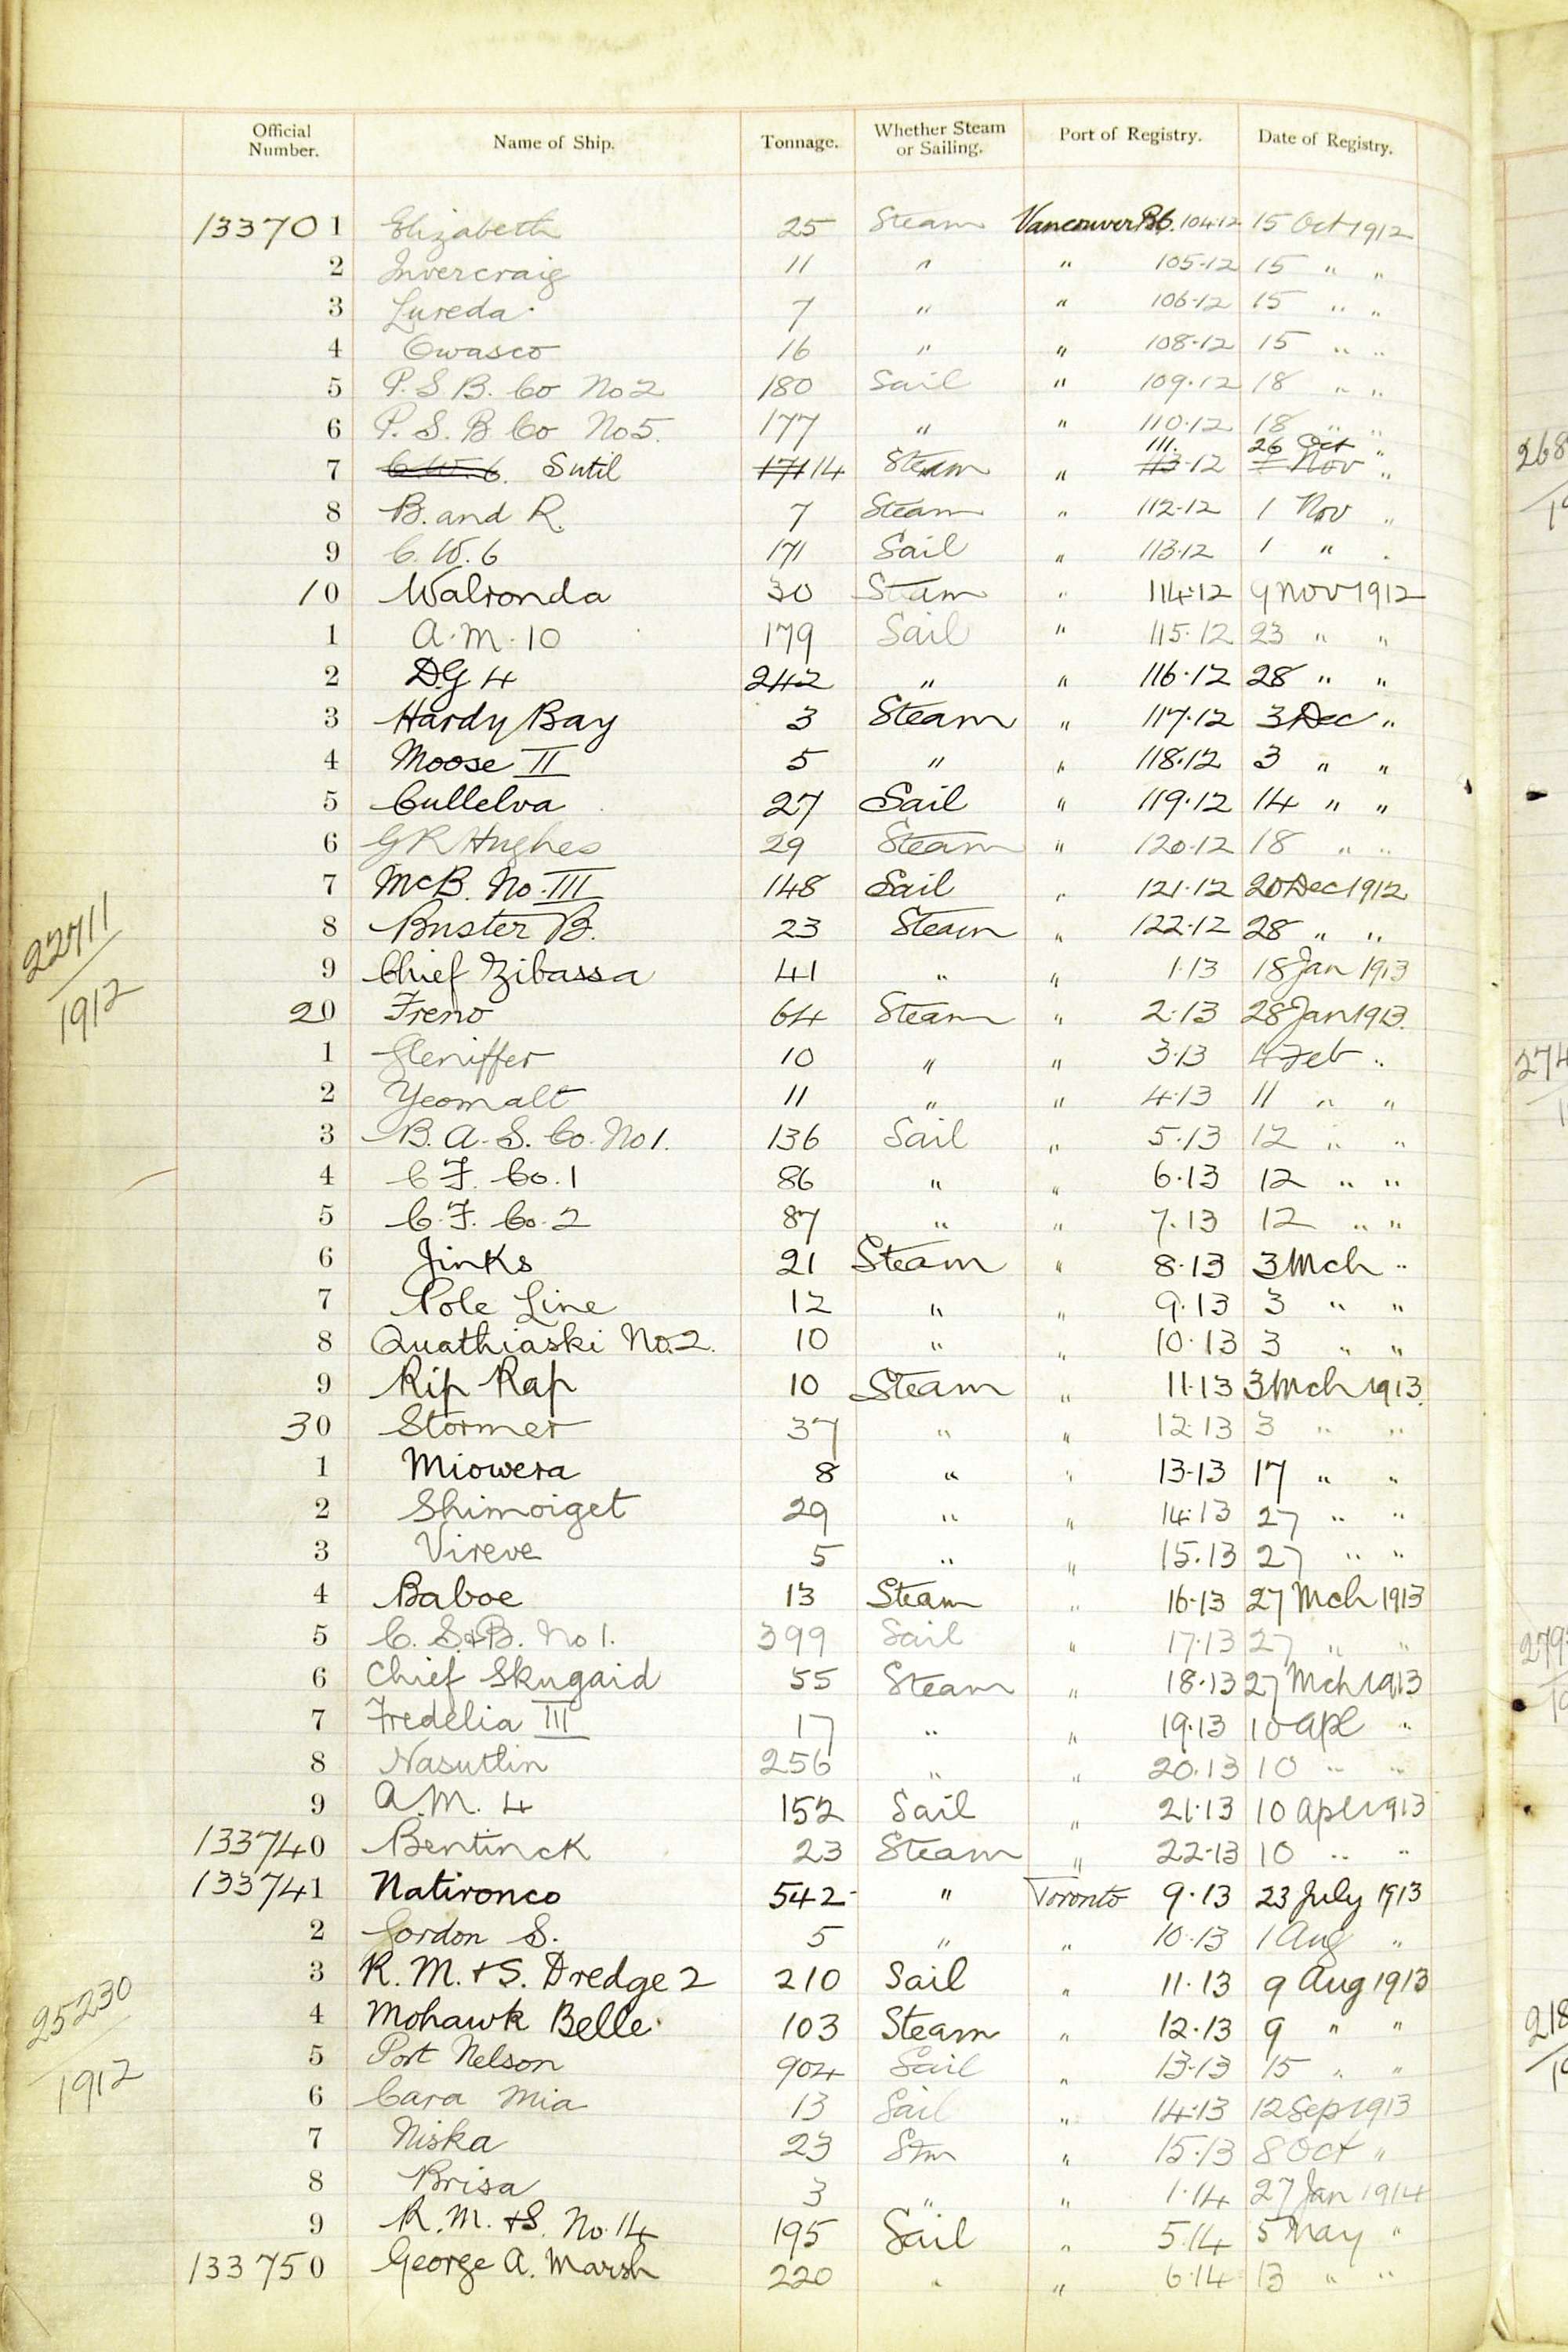 Official Number. Name of Ship. Tonnage. Whether Steam or Sailing. Port of Registry. Date of Registry.
133701 Elizabeth 25 Steam Vancouver B.C. 104.12 15 Oct 1912
2 Invercraig 11 " " 105.12 15 " "
3 Lureda 7 " " 106.12 15 " "
4 Owasco 16 " " 108.12 15 " "
5 P.S.B. Co No 2 180 Sail " 109.12 18 " "
6 P.S.B. Co No 5. 177 " " 110.12 18 " "
111. 26 Oct
7 C.W. 6. Sutil 171 14 Steam " 113.12 Nov "
8 B. and R. 7 Steam " 112.12 1 Nov "
9 C.W. 6 171 Sail " 113.12 1 " "
10 Walronda 30 Steam " 114.12 9 Nov 1912
1 A.M. 10 179 Sail " 115.12 23 " "
2 D.G 4 242 " " 116.12 28 " "
3 Hardy Bay 3 Steam " 117.12 3 Dec "
4 Moose II 5 " " 118.12 3 " "
5 Cullelva 27 Sail " 119.12 14 " "
6 G R Hughes 29 Steam " 120.12 18 " "
7 McB. No. III 148 Sail " 121.12 20 Dec 1912
8 Buster B. 23 Steam " 122.12 28 " "
22711
1912
9 Chief Zibassa 41 " " 1.13 18 Jan 1913
20 Freno 64 Steam " 2.13 28 Jan 1913.
1 Gleniffer 10 " " 3.13 4 Feb "
2 Yeomalt 11 " " 4.13 11 " "
3 B.A.S. Co. No 1. 136 Sail " 5.13 12 " "
4 C F. Co. 1 86 " " 6.13 12 " "
5 C.F. Co. 2 87 " " 7.13 12 " "
6 Jinks 21 Steam " 8.13 3 Mch "
7 Pole Line 12 " " 9.13 3 " "
8 Quathiaski No. 2. 10 " " 10.13 3 " "
9 Rip Rap 10 Steam " 11.13 3 Mch 1913.
30 Stormer 37 " " 12.13 3 " "
1 Miowera 8 " " 13.13 17 " "
2 Shimoiget 29 " " 14.13 27 " "
3 Vireve 5 " " 15.13 27 " "
4 Baboe 13 Steam " 16.13 27 Mch 1913
5 C. S.&B. No 1. 399 Sail " 17.13 27 " "
6 Chief Skugaid 55 Steam " 18.13 27 Mch 1913
7 Fredelia III 17 " " 19.13 10 Apl "
8 Nasutlin 256 " " 20.13 10 " "
9 A.M. 4 152 Sail " 21.13 10 Apl 1913
133740 Bentinck 23 Steam " 22.13 10 " "
133741 Natironco 542 " Toronto 9.13 23 July 1913
2 Gordon S. 5 " " 10.13 1 Aug "
3 R.M. & S. Dredge 2 210 Sail " 11.13 9 Aug 1913
25230
1912
4 Mohawk Belle 103 Steam " 12.13 9 " "
5 Port Nelson 904 Sail " 13.13 15 " "
6 Cara Mia 13 Sail " 14.13 12 Sep 1913
7 Niska 23 Stm " 15.13 8 Oct "
8 Brisa 3 " " 1.14 27 Jan 1914
9 R.M. & S. No. 14 195 Sail " 5.14 5 May "
133750 George A. Marsh 220 " " 6.14 13 " "
268
274
279
218